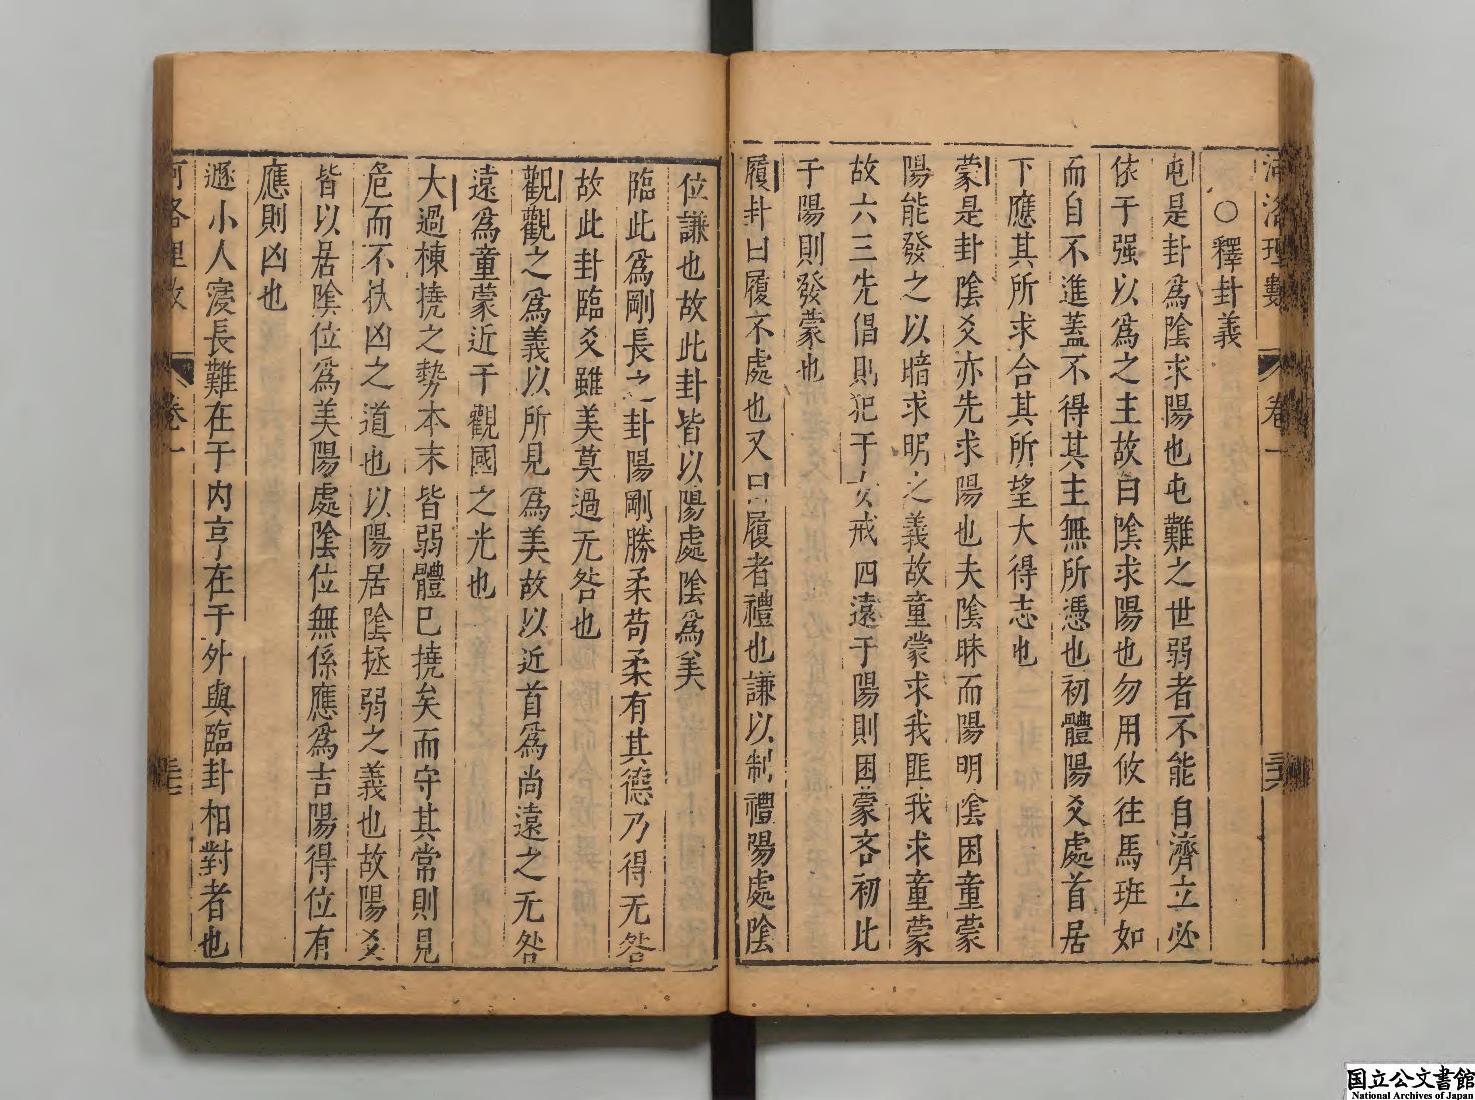 河洛理數 卷一
○釋卦義
屯是卦爲陰求陽也屯難之世弱者不能自濟立必
依于强以爲之主故曰陰求陽也勿用攸往馬班如
而自不進蓋不得其主無所憑也初體陽爻處首居
下應其所求合其所望大得志也
蒙是卦陰爻亦先求陽也夫陰昧而陽明陰困童蒙
陽能發之以暗求明之義故童蒙求我匪我求童蒙
故六三先倡則犯于女戒四遠于陽則困蒙吝初比
于陽則發蒙也
履卦曰履不處也又曰履者禮也謙以制禮陽處陰
位謙也故此卦皆以陽處陰爲美
臨此爲剛長之卦陽剛勝柔苟柔有其德乃得无咎
故此卦臨爻雖美莫過无咎也
觀觀之爲義以所見爲美故以近首爲尚遠之无咎
遠爲童蒙近于觀國之光也
大過棟撓之勢本末皆弱體已撓矣而守其常則見
危而不扶凶之道也以陽居陰拯弱之義也故陽爻
皆以居陰位爲美陽處陰位無係應爲吉陽得位有
應則凶也
遯小人寖長難在于內亨在于外與臨卦相對者也
河洛理數 卷一
国立公文書館
National Archives of Japan